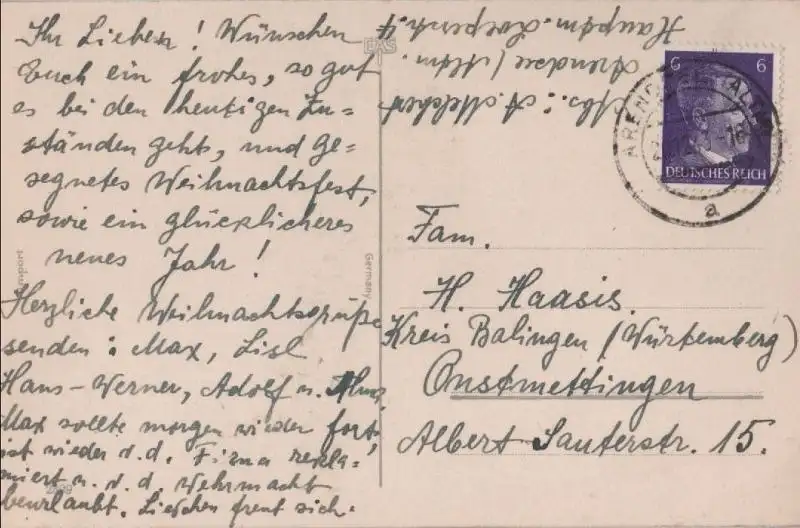 Ihr Lieben! Wünschen
Euch ein frohes, so gut
es bei den heutigen Zu-
ständen geht, und Ge-
segnetes Weihnachtsfest,
sowie ein glücklicheres
neues Jahr!
Herzliche Weihnachtsgrüße
senden: Max, Lisl
Hans-Werner, Adolf u.
Max sollte morgen wieder fort,
ist wieder v. d. Firma rekla-
miert u. v. d. Wehrmacht
beurlaubt. Lieschen freut sich.
Abs.: A. Melchert
Arendsee/Altm.
Hauptm. 4
EAS
6 6
DEUTSCHES REICH
ARENDSEE (ALTM)
18
a
Fam.
H. Haasis.
Kreis Balingen (Würtemberg)
Onstmettingen
Albert Sauterstr. 15.
Germany